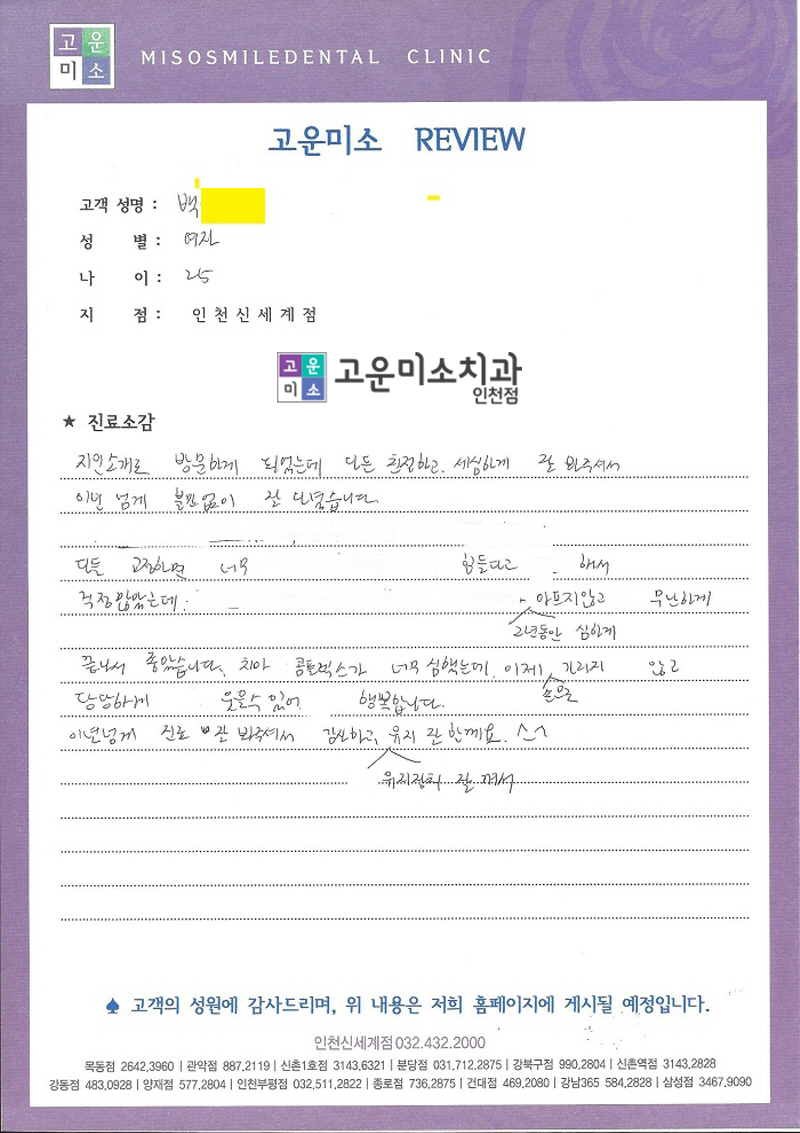 고운
미소
MISOSMILEDENTAL CLINIC
고운미소 REVIEW
고객 성명 : 백
성 별 : 여자
나 이 : 25
지 점 : 인천신세계점
고운
미소
고운미소치과
인천점
★ 진료소감
지인소개로 방문하게 되었는데 다든 친절하고, 세심하게 잘 봐주셔서
이년 넘게 불만없이 잘 다녔습니다.
다들 교정하면 너무 힘들다고 해서
걱정많았는데. 아프지않고 무난하게
2년동안 심하게
끝나서 좋았습니다. 치아 콤플렉스가 너무 심했는데, 이제 가리지 않고
손으로
당당하게 웃을수 있어 행복합니다.
이년넘게 진료 봐주셔서 감사하고, 유지 잘 할께요. ^-^
유지장치 잘 껴서
♠ 고객의 성원에 감사드리며, 위 내용은 저희 홈페이지에 게시될 예정입니다.
인천신세계점 032.432.2000
목동점 2642,3960 | 관악점 887,2119 | 신촌1호점 3143,6321 | 분당점 031,712,2875 | 강북구점 990,2804 | 신촌역점 3143,2828
강동점 483,0928 | 양재점 577,2804 | 인천부평점 032,511,2822 | 종로점 736,2875 | 건대점 469,2080 | 강남365 584,2828 | 삼성점 3467,9090